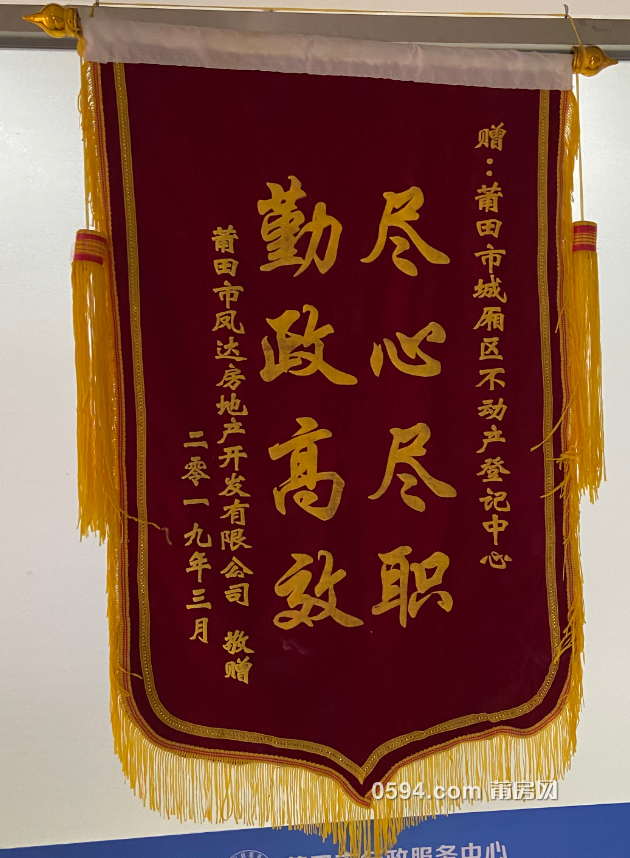 赠：莆田市城厢区不动产登记中心
尽心尽职
勤政高效
莆田市凤达房地产开发有限公司 敬赠
二零一九年三月
0594.com 莆房网
政服务中心